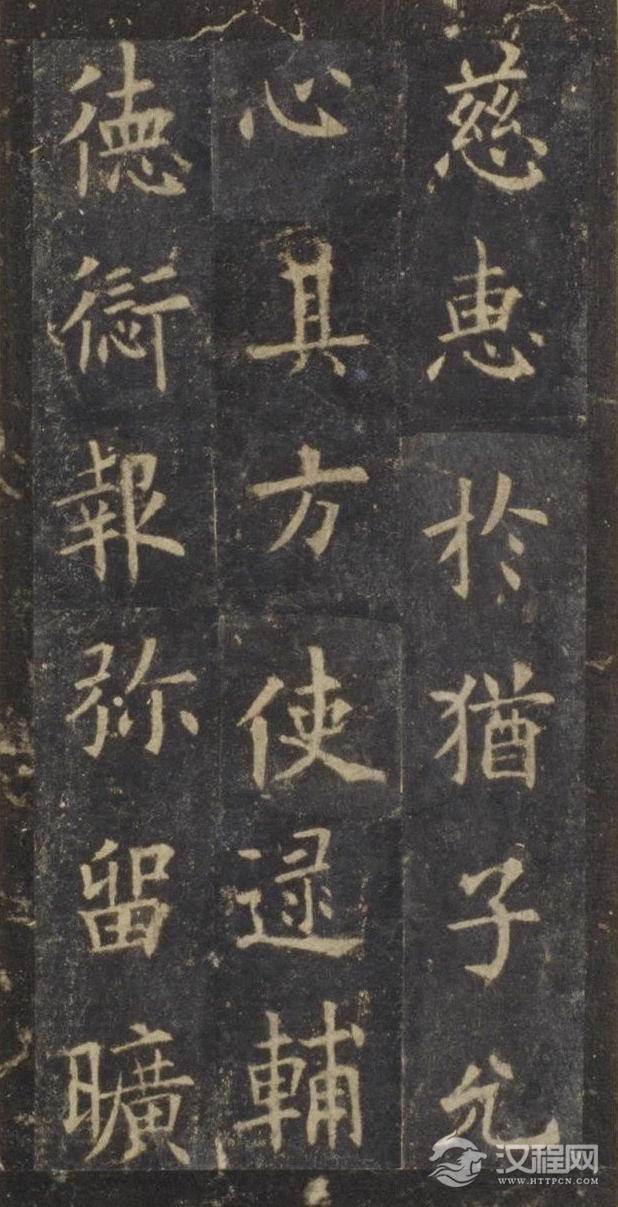 慈恵扵猶子允
心具方使逯輔
徳愆報弥留曠
汉程网
WWW.HTTPCN.COM